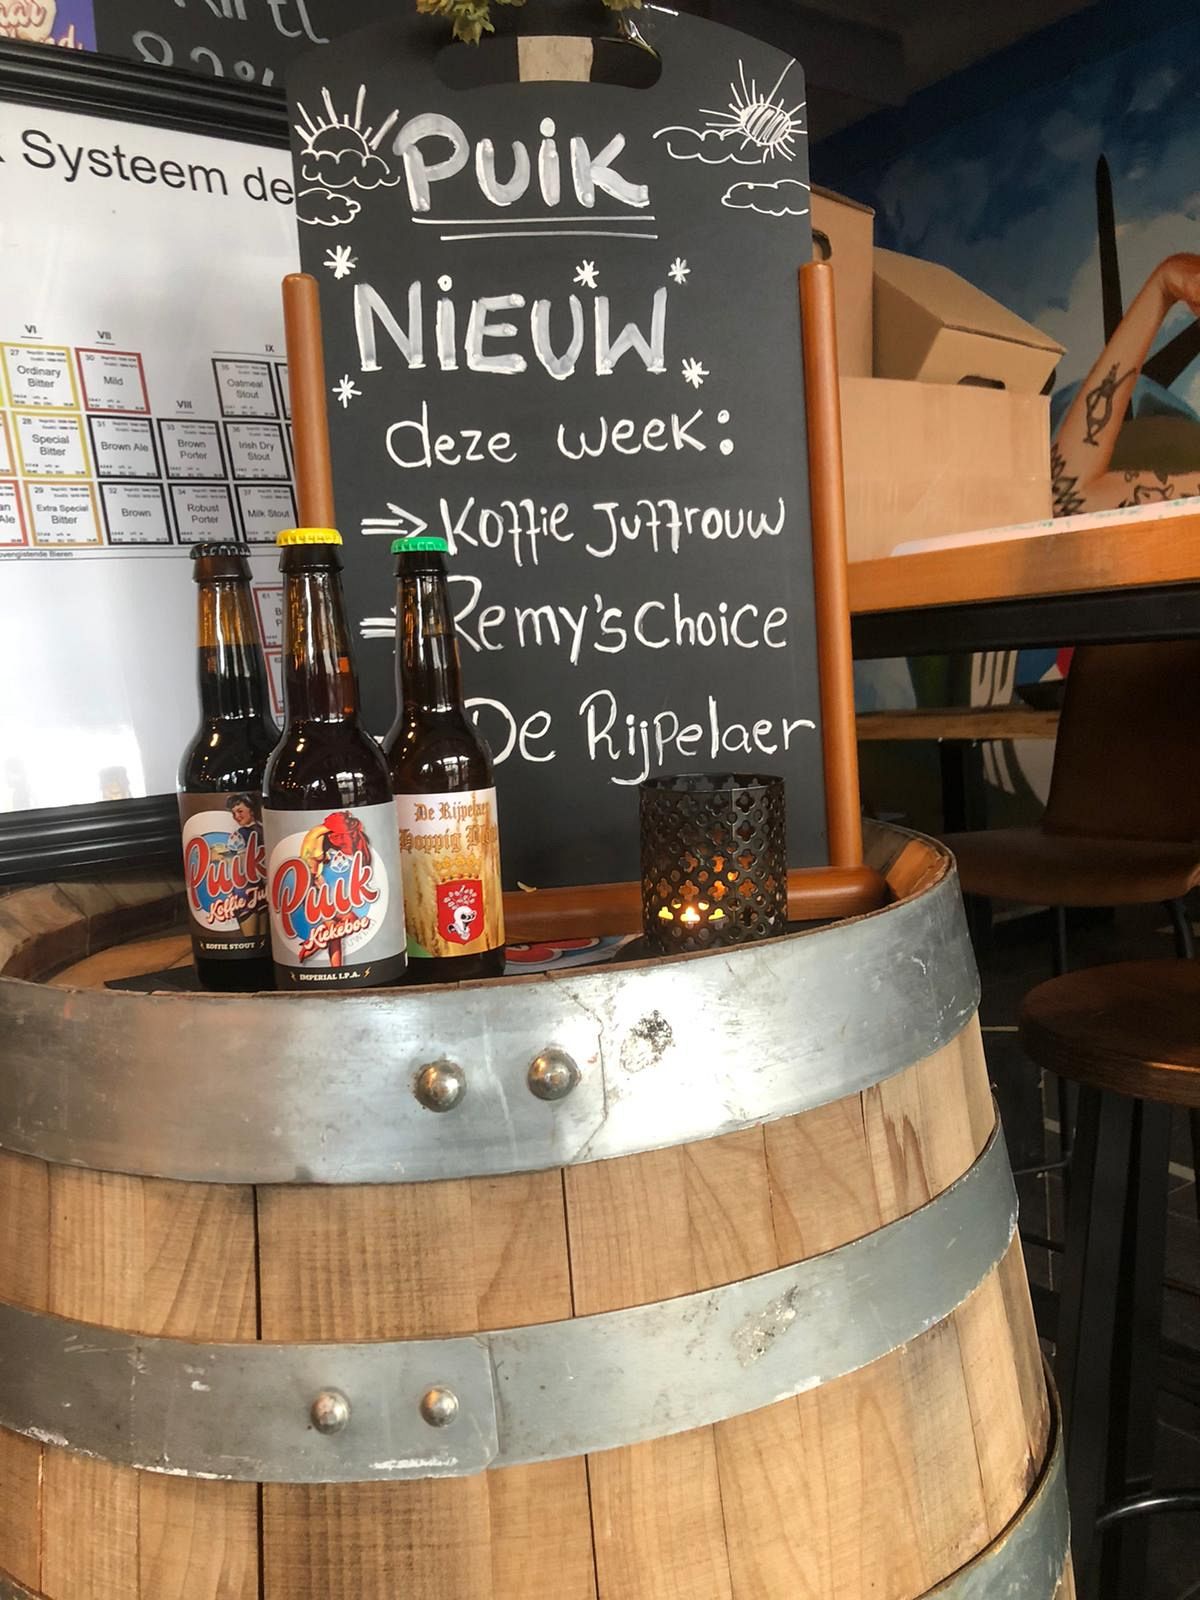 Systeem de
VI
VII
VIII
IX
27
Ordinary
Bitter
30
Mild
Oatmeal
Stout
28
Special
Bitter
31
Brown Ale
33
Brown
Porter
36
Irish Dry
Stout
Ale
29
Extra Special
Bitter
32
Brown
34
Robust
Porter
37
Milk Stout
Bieren
61
PUiK
NiEUW
deze week:
=> Koffie Juffrouw
Remy's Choice
De Rijpelaer
Puik
Koffie Ju
KOFFIE STOUT
Puik
Kiekeboe
IMPERIAL I.P.A.
De Rijpelaer
Hoppig